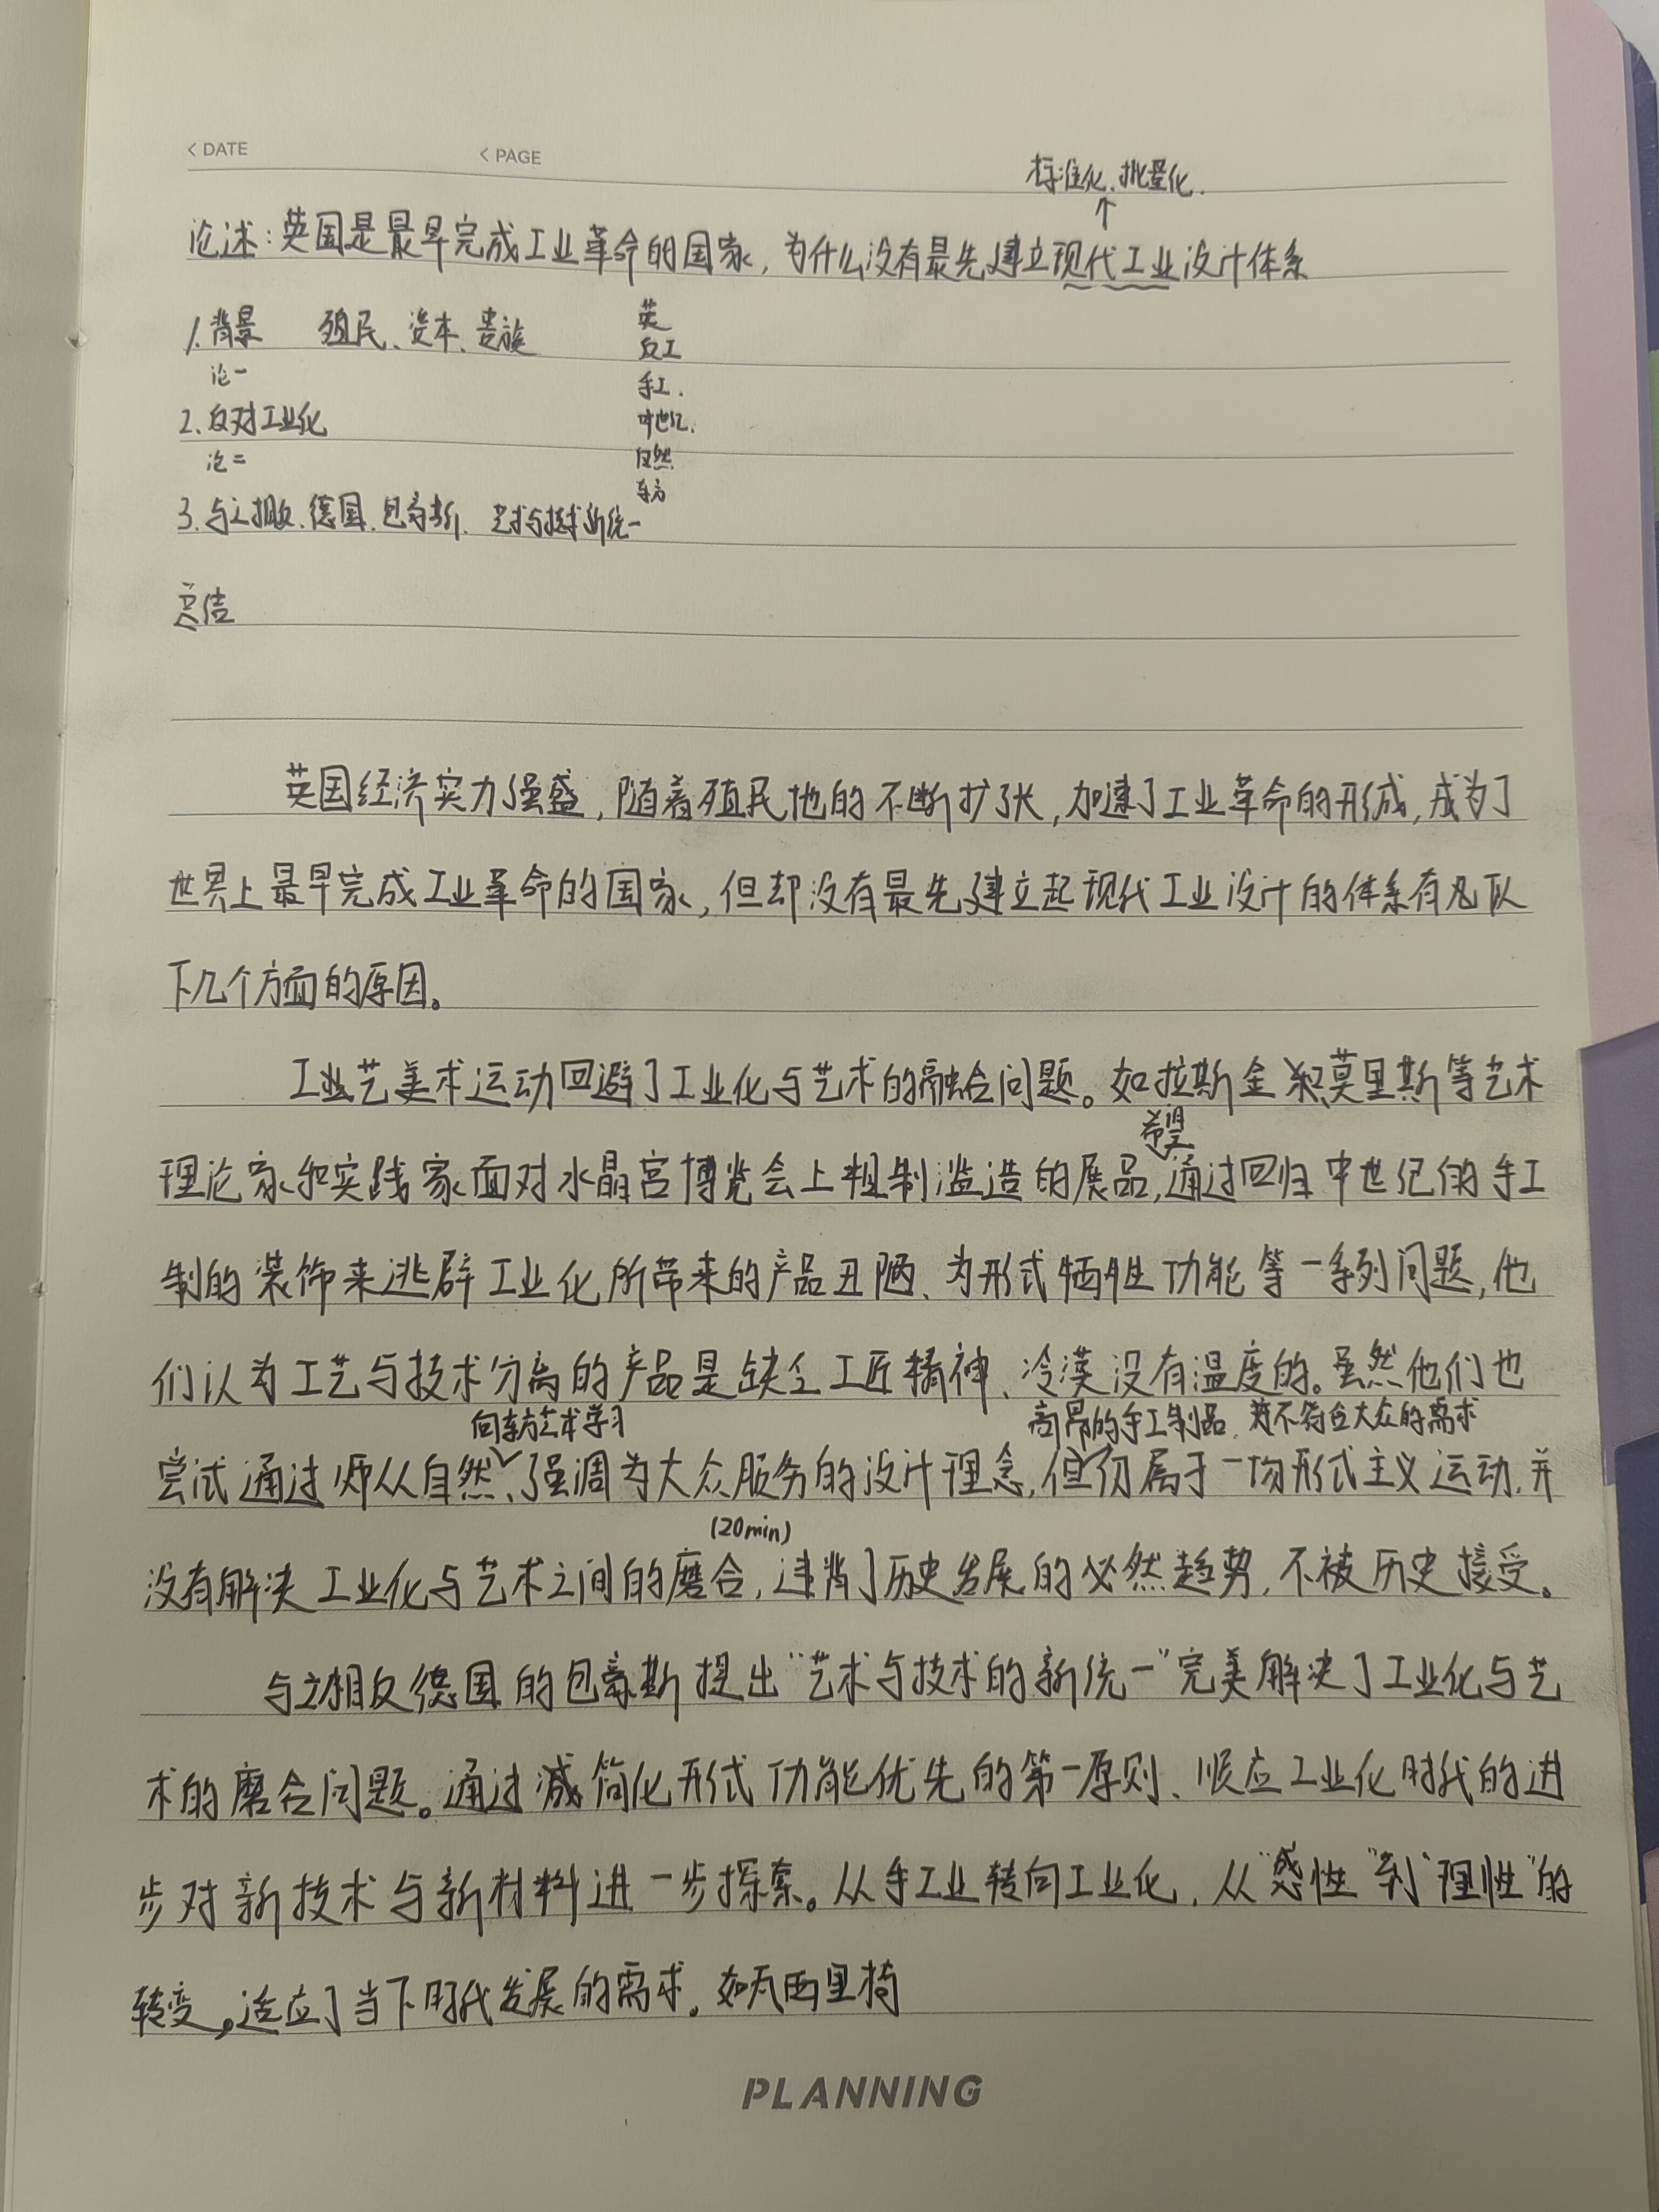 < DATE
< PAGE
标准化、批量化.
↑
论述：英国是最早完成工业革命的国家，为什么没有最先建立现代工业设计体系
1. 背景 殖民、资本、贵族
论一
2. 反对工业化
论二
3. 与之相反、德国、包豪斯、艺术与技术新统一
总结
英
反工
手工.
中世纪.
自然
东方
英国经济实力强盛，随着殖民地的不断扩张，加速了工业革命的形成，成为了
世界上最早完成工业革命的国家，但却没有最先建立起现代工业设计的体系有以
下几个方面的原因。
工业艺美术运动回避了工业化与艺术的融合问题。如拉斯金和莫里斯等艺术
希望
理论家和实践家面对水晶宫博览会上粗制滥造的展品，通过回归中世纪的手工
制的装饰来逃避工业化所带来的产品丑陋、为形式牺牲功能等一系列问题，他
们认为工艺与技术分离的产品是缺乏工匠精神、冷漠没有温度的。虽然他们也
向东方艺术学习
高昂的手工制品，并不符合大众的需求
尝试通过师从自然、强调为大众服务的设计理念，但仍属于一场形式主义运动，并
(20min)
没有解决工业化与艺术之间的磨合，违背了历史发展的必然趋势，不被历史接受。
与之相反德国的包豪斯提出“艺术与技术的新统一”完美解决了工业化与艺
术的磨合问题。通过减简化形式功能优先的第一原则、顺应工业化时代的进
步对新技术与新材料进一步探索。从手工业转向工业化，从“感性”到“理性”的
转变，适应了当下时代发展的需求。如瓦西里椅
PLANNING